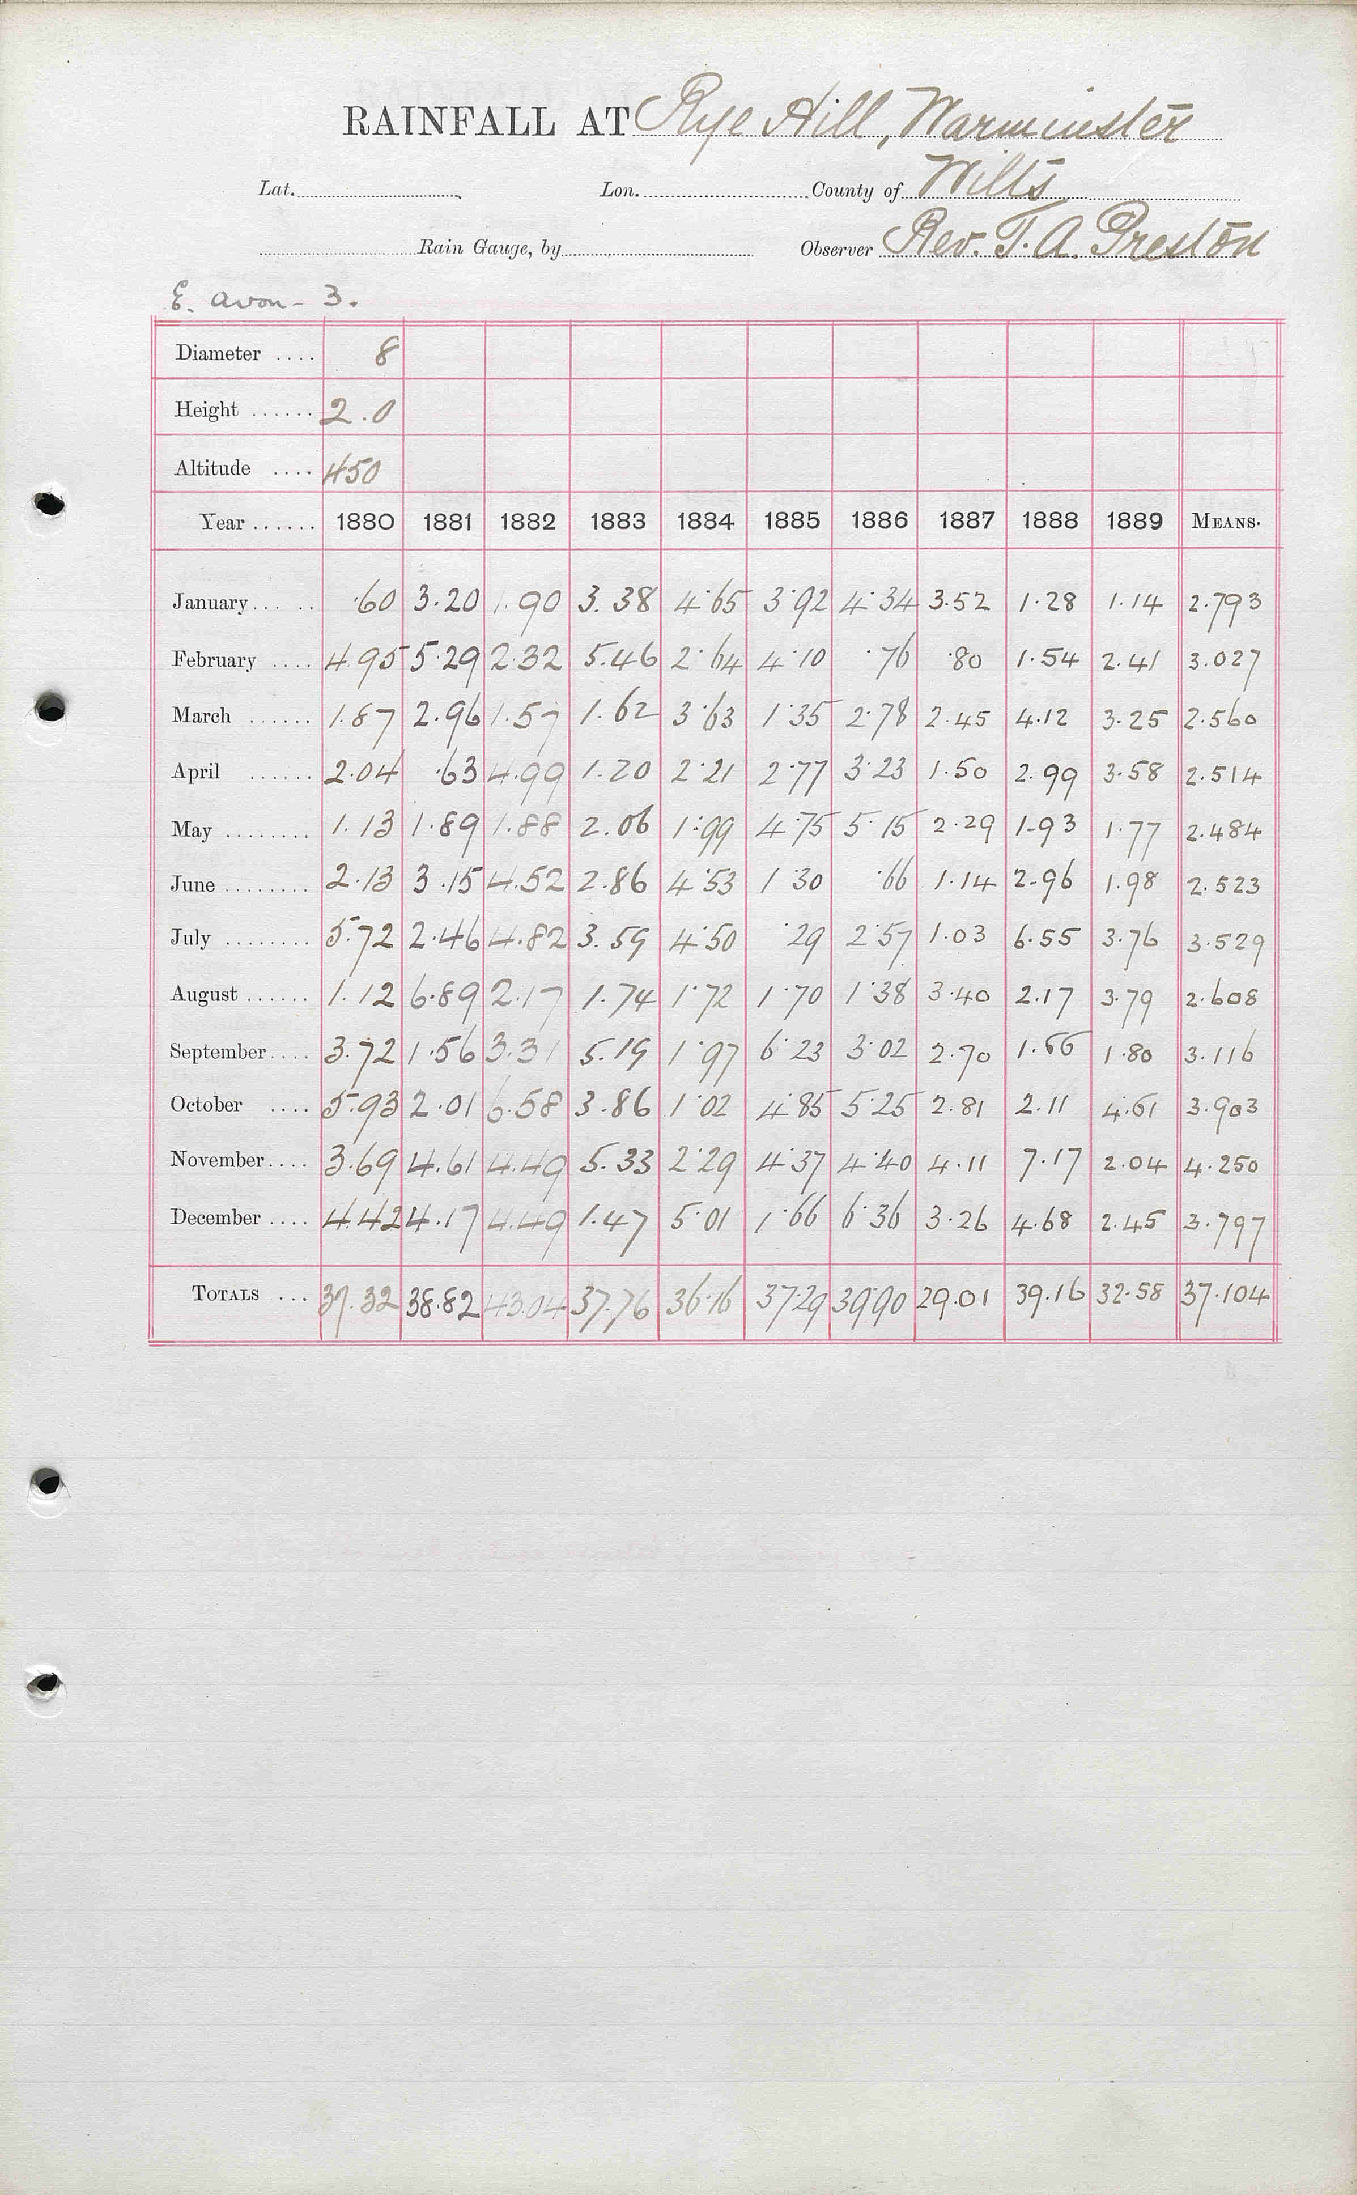 RAINFALL AT Rye Hill, Warminster
Lat. Lon. County of Wilts
Rain Gauge, by Observer Rev. T. A. Preston
E. Avon - 3.
Diameter .... 8
Height ...... 2.0
Altitude .... 450
Year ...... 1880 1881 1882 1883 1884 1885 1886 1887 1888 1889 MEANS.
January ..... .60 3.20 1.90 3.38 4.65 3.92 4.34 3.52 1.28 1.14 2.793
February .... 4.95 5.29 2.32 5.46 2.64 4.10 .76 .80 1.54 2.41 3.027
March ...... 1.87 2.96 1.57 1.62 3.63 1.35 2.78 2.45 4.12 3.25 2.560
April ...... 2.04 .63 4.99 1.20 2.21 2.77 3.23 1.50 2.99 3.58 2.514
May ........ 1.13 1.89 1.88 2.06 1.99 4.75 5.15 2.29 1.93 1.77 2.484
June ........ 2.13 3.15 4.52 2.86 4.53 1 30 .66 1.14 2.96 1.98 2.523
July ........ 5.72 2.46 4.82 3.59 4.50 .29 2.57 1.03 6.55 3.76 3.529
August ...... 1.12 6.89 2.17 1.74 1.72 1.70 1.38 3.40 2.17 3.79 2.608
September .... 3.72 1.56 3.31 5.19 1.97 6.23 3.02 2.70 1.66 1.80 3.116
October .... 5.93 2.01 6.58 3.86 1.02 4.85 5.25 2.81 2.11 4.61 3.903
November .... 3.69 4.61 4.49 5.33 2.29 4.37 4.40 4.11 7.17 2.04 4.250
December .... 4.42 4.17 4.49 1.47 5.01 1.66 6.36 3.26 4.68 2.45 3.797
TOTALS ... 37.32 38.82 43.04 37.76 36.16 37.29 39.90 29.01 39.16 32.58 37.104